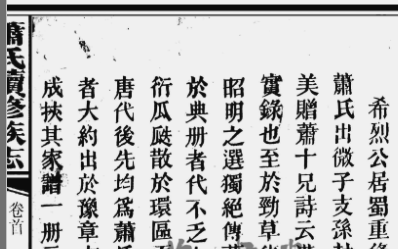 希烈公居蜀重修
蕭氏出微子支孫
美贈蕭十兄詩云
實錄也至於勁草
昭明之選獨絕傳
於典册者代不乏
衍瓜瓞散於環區
唐代後先均爲蕭
者大約出於豫章
成挾其家譜一册
蕭氏續修族志
卷首